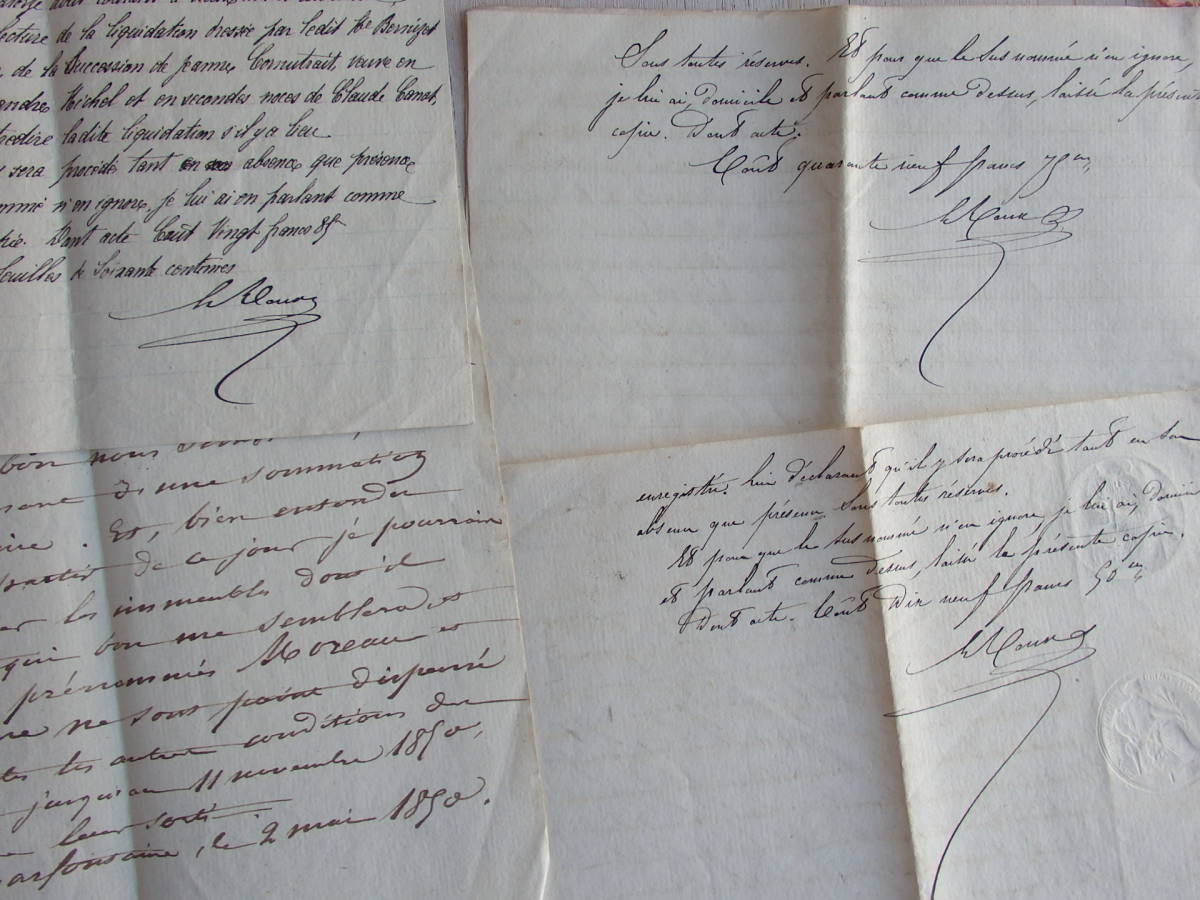 de la liquidation dressée par ledit Me Bernizet
de la succession de Jeanne Cornutrait, veuve en
Michel et en secondes noces de Claude Canat,
ladite liquidation s'il y a lieu
sera procédé tant en absence que présence
n'en ignore, je lui ai en parlant comme
Dont acte Coût Vingt francs 85
feuilles de soixante centimes
Sous toutes réserves. Et pour que le sus nommé n'en ignore,
je lui ai, domicile et parlant comme dessus, laissé la présente
copie. Dont acte.
Coût quarante neuf francs 75 cs
bon nous
d'une sommation
Et, bien entendu
partir de ce jour je pourrai
les immeubles dont il
qui bon me semblera et
prénommés Moreau et
ne sont point dispensé
les autres conditions du
jusqu'au 11 novembre 1850,
leur sortie
le 2 mai 1850.
enregistré. lui déclarant qu'il y sera procédé tant en son
absence que présence sous toutes réserves.
Et pour que le sus nommé n'en ignore, je lui ai, domicile
et parlant comme dessus, laissé la présente copie.
Dont acte. Coût dix neuf francs 50 cs